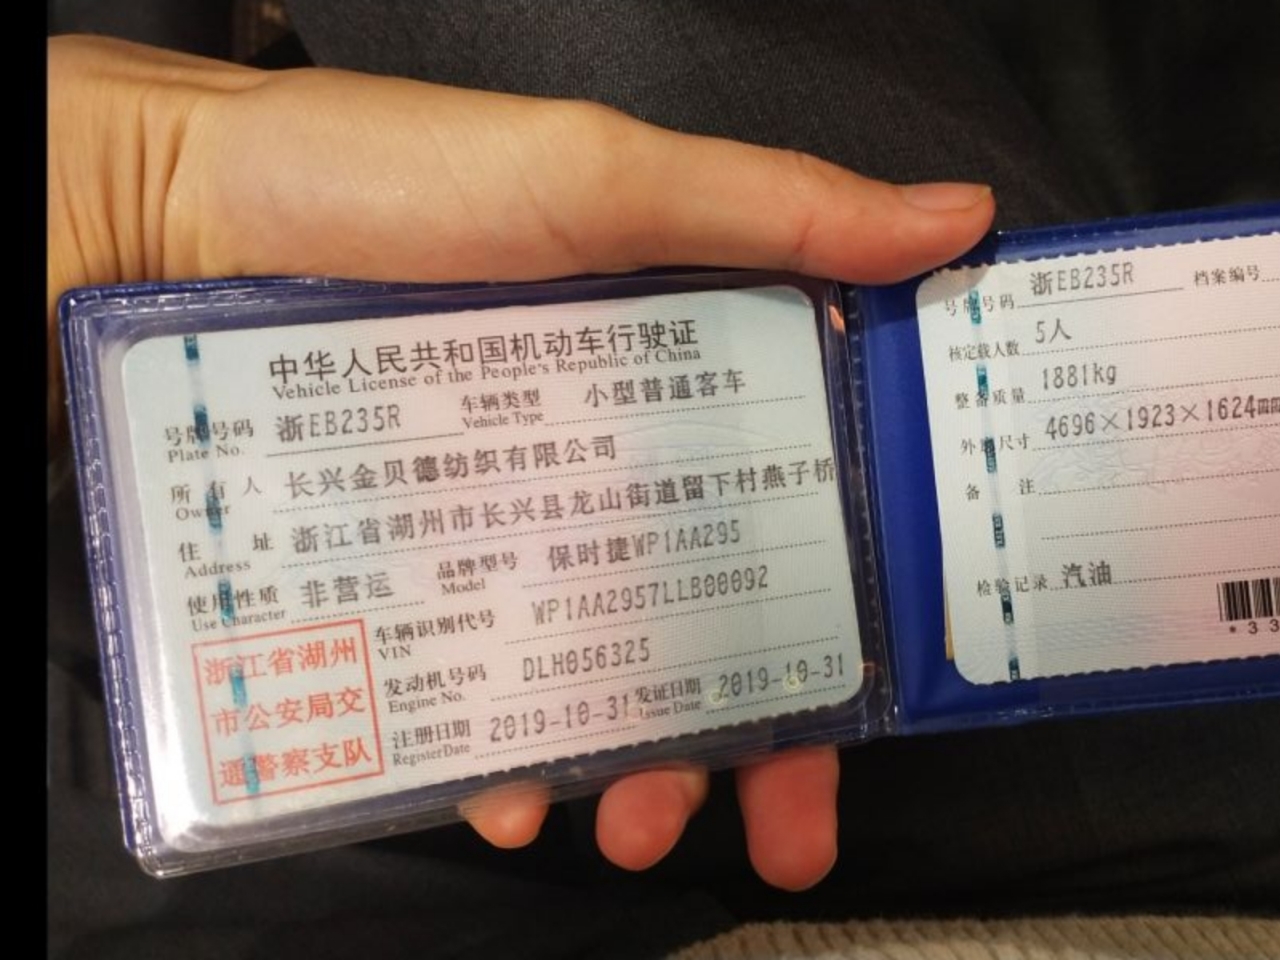 中华人民共和国机动车行驶证
Vehicle License of the People's Republic of China
号牌号码 浙EB235R 车辆类型 小型普通客车
Plate No. Vehicle Type
所有人 长兴金贝德纺织有限公司
Owner
住址 浙江省湖州市长兴县龙山街道留下村燕子桥
Address
使用性质 非营运 品牌型号 保时捷WP1AA295
Use Character Model
车辆识别代号 WP1AA2957LLB00092
VIN
发动机号码 DLH056325
Engine No.
注册日期 2019-10-31 发证日期 2019-10-31
Register Date Issue Date
浙江省湖州
市公安局交
通警察支队
号牌号码 浙EB235R 档案编号
核定载人数 5人
整备质量 1881kg
外廓尺寸 4696×1923×1624mm
备注
检验记录 汽油
*33